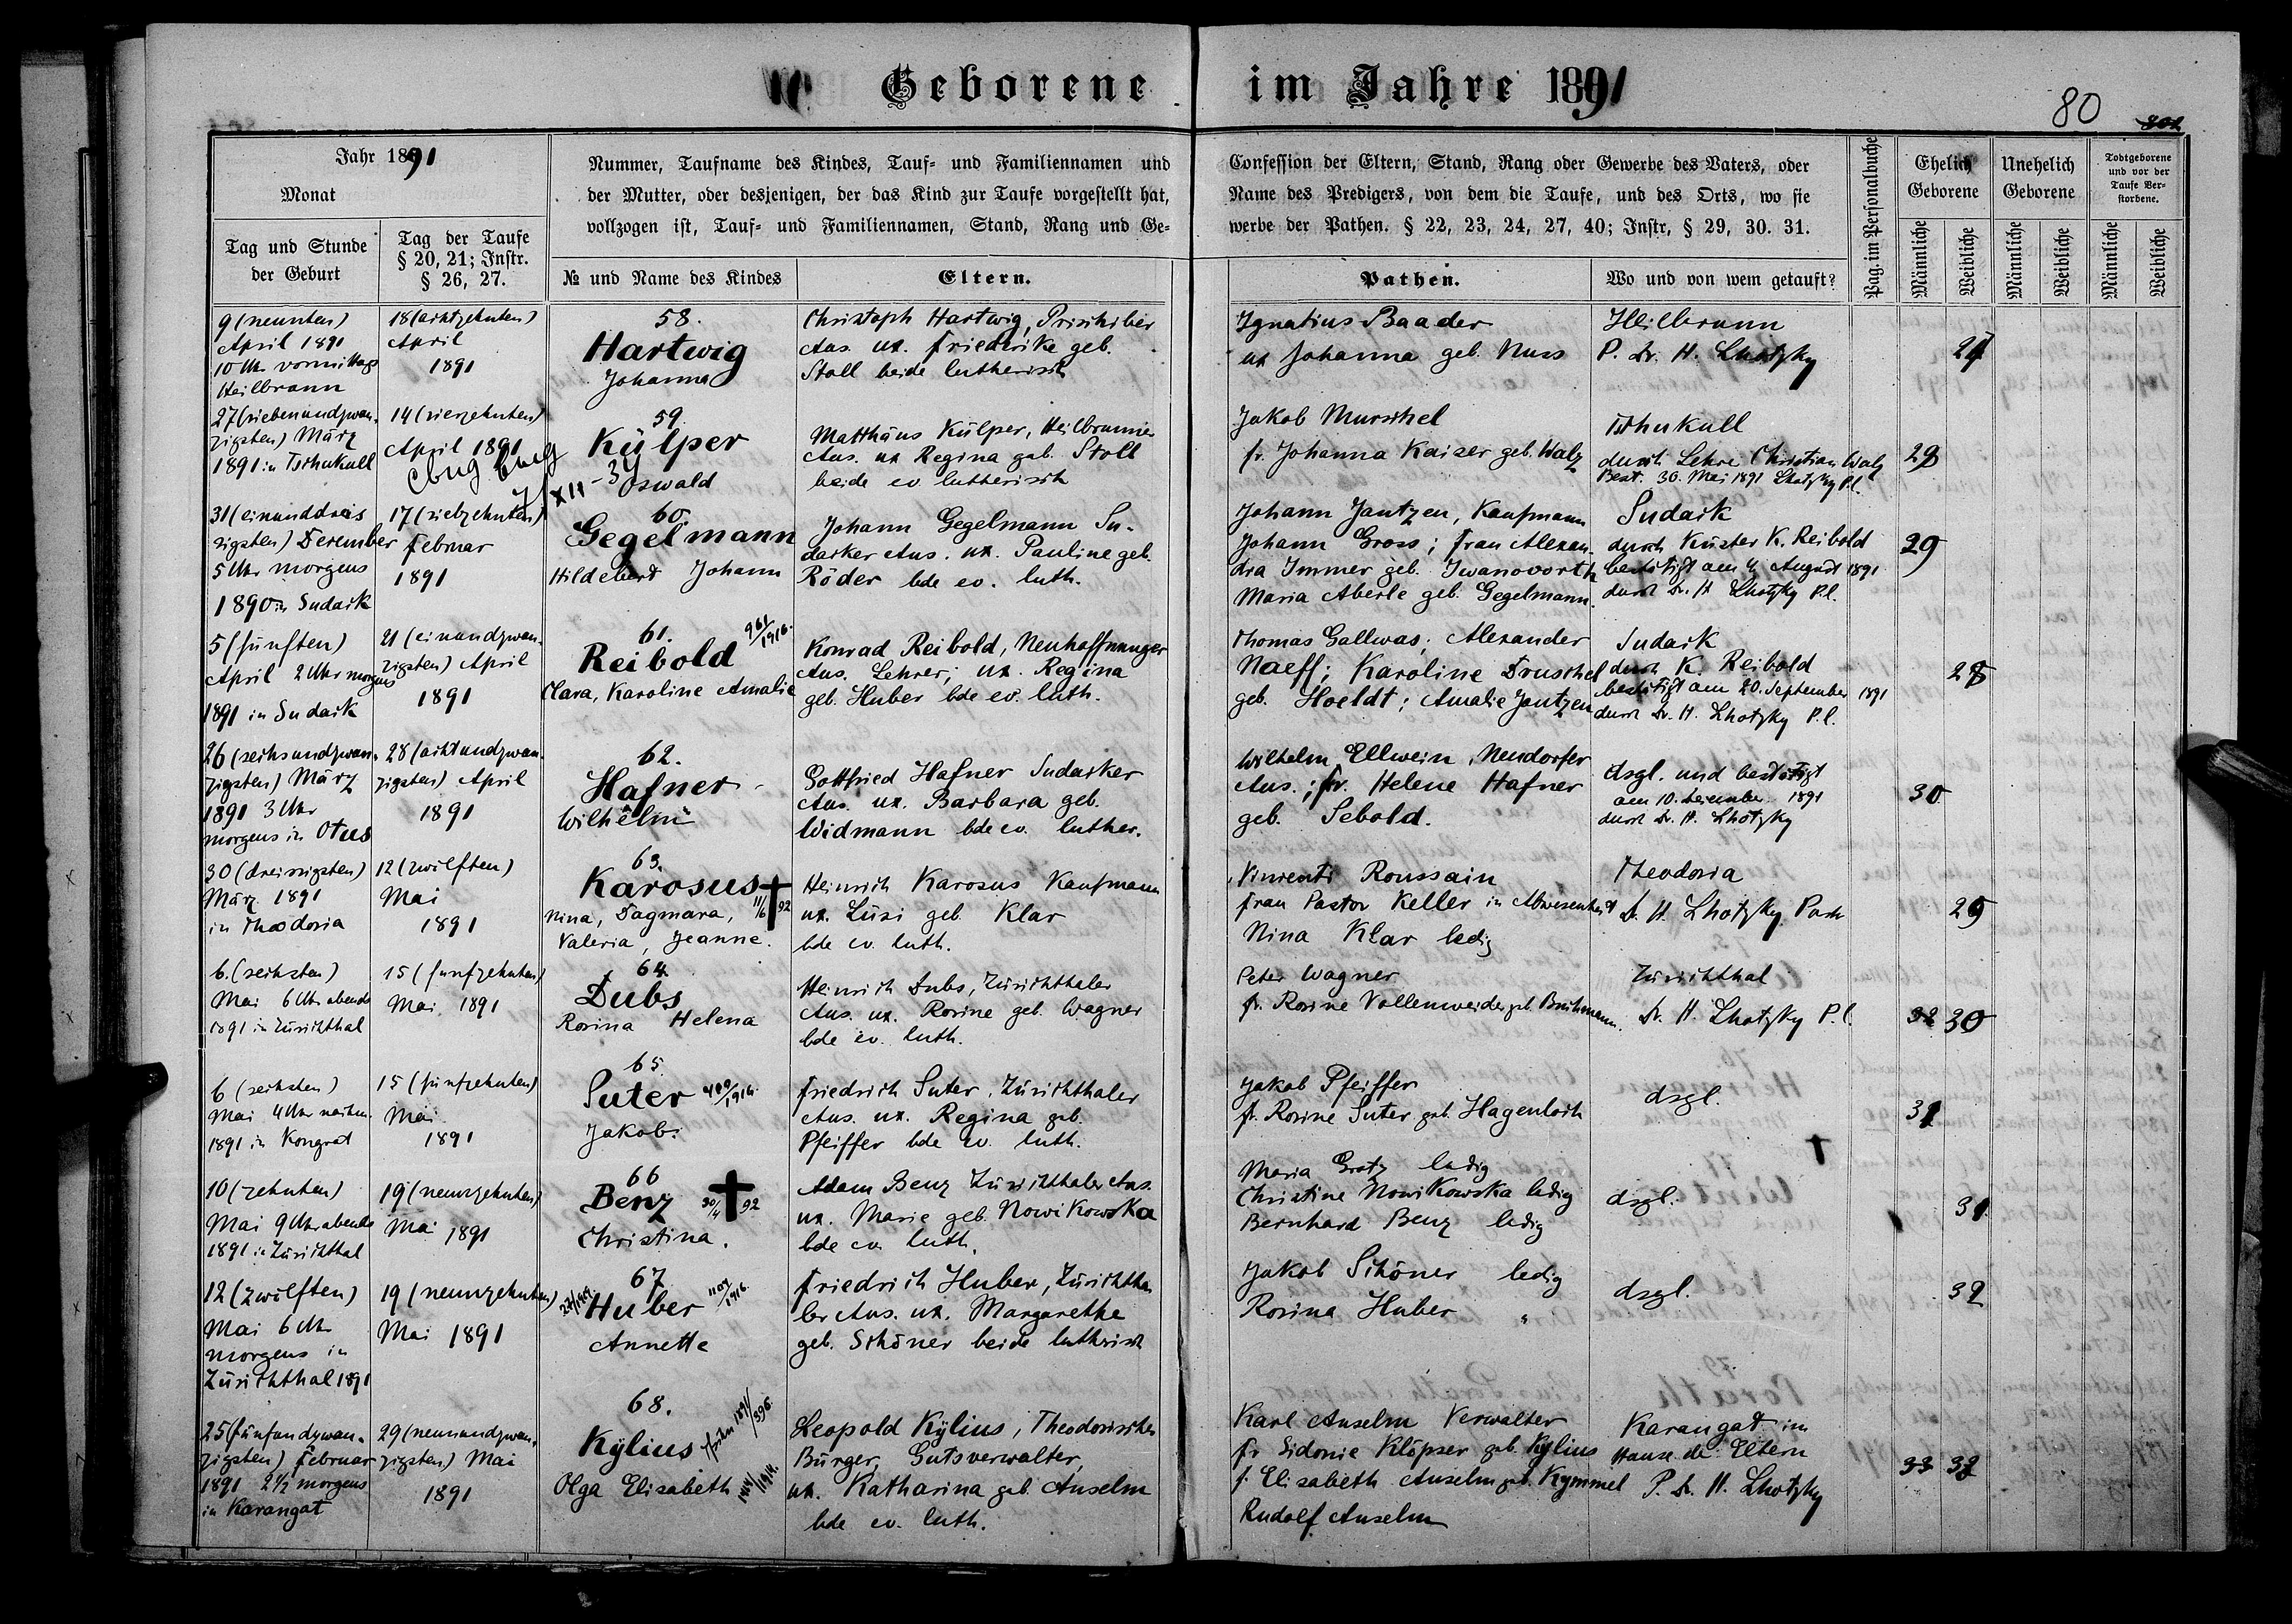 Geborene im Jahre 1891
80
Jahr 1891
Monat
Tag und Stunde
der Geburt
Tag der Taufe
§ 20, 21; Instr.
§ 26, 27.
Nummer, Taufname des Kindes, Tauf- und Familiennamen und
der Mutter, oder desjenigen, der das Kind zur Taufe vorgestellt hat,
vollzogen ist, Tauf- und Familiennamen, Stand, Rang und Ge-
№ und Name des Kindes
Eltern.
Confession der Eltern, Stand, Rang oder Gewerbe des Vaters, oder
Name des Predigers, von dem die Taufe, und des Orts, wo sie
werbe der Pathen. § 22, 23, 24, 27, 40; Instr, § 29, 30. 31.
Pathen.
Wo und von wem getauft?
Pag. im Personalbuche
Ehelich
Geborene
Unehelich
Geborene
Todtgeborene
und vor der
Taufe Ver-
storbene.
Männliche
Weibliche
Männliche
Weibliche
Männliche
Weibliche
9 (neunten)
April 1891
10 Uhr vormittags
Heilbrunn
18 (achtzehnten)
April
1891
58.
Hartwig
Johanna
Christoph Hartwig, Prischiber
Ans. ux. Friederike geb.
Stoll beide lutherisch
Ignatius Baader
ux Johanna geb. Nuss
Heilbrunn
P. Dr. H. Lhotzky
27
27 (siebenundzwan-
zigsten) März
1891 in Tschukull
14 (vierzehnten)
April 1891
59.
Külper
Oswald
Matthäus Külper, Heilbrunner
Ans. ux Regina geb. Stoll
beide ev. lutherisch
Jakob Murschel
fr. Johanna Kaiser geb. Walz
Tschukull
durch Lehrer Christian Walz
Best. 30. Mai 1891 Lhotzky P.l.
28
31 (einunddreis
sigsten) December
5 Uhr morgens
1890 in Sudack
17 (siebzehnten)
Februar
1891
60.
Gegelmann
Hildebert Johann
Johann Gegelmann Su-
darker Ans. ux. Pauline geb.
Röder bde ev. luth.
Johann Jantzen, Kaufmann
Johann Gross; Frau Alexan-
dra Immer geb. Iwanovorth
Maria Aberle geb. Gegelmann.
Sudack
durch Küster K. Reibold
bestätigt am 4 August 1891
durch Dr. H Lhotzky P.l.
29
5 (fünften)
April 2 Uhr morgens
1891 in Sudack
21 (einundzwan-
zigsten) April
1891
61.
961/1916.
Reibold
Clara, Karoline Amalie
Konrad Reibold, Neuhoffnunger
Ans. Lehrer; ux. Regina
geb. Huber bde ev. luth.
Thomas Gallwas; Alexander
Naeff; Karoline Druschel
geb. Hoeldt; Amalie Jantzen
Sudack
durch K. Reibold
bestätigt am 20. September 1891
durch Dr. H. Lhotzky P.l.
28
26 (sechsundzwan-
zigsten) März
1891 3 Uhr
morgens in Otus
28 (achtundzwan
zigsten) April
1891
62.
Hafner
Wilhelm
Gottfried Hafner Sudacker
Ans. ux. Barbara geb.
Widmann bde ev. luther.
Wilhelm Ellwein, Neudorfer
Ans.; fr. Helene Hafner
geb. Sebold.
dsgl. und bestätigt
am 10. Dezember 1891
durch Dr. H. Lhotzky
30
30 (dreissigsten)
März 1891
in Theodosia
12 (zwölften)
Mai
1891
63.
Karosus
11/6 92
Nina, Dagmara,
Valeria, Jeanne.
Heinrich Karosus Kaufmann
ux. Lüsi geb. Klar
bde ev. luth.
Vincenti Roussain
Frau Pastor Keller in Abwesenheit
Nina Klar ledig
Theodosia
Dr. H. Lhotzky Past
29
6. (sechsten)
Mai 6 Uhr abends
1891 in Zürichthal
15 (fünfzehnten)
Mai 1891
64.
Dubs
Rosina Helena
Heinrich Dubs, Zürichthaler
Ans. ux. Rosine geb. Wagner
bde ev. luth.
Peter Wagner
fr. Rosine Vollenweider geb. Bruhmann.
Zürichthal
Dr. H. Lhotzky P.l.
32 30
6 (sechsten)
Mai 4 Uhr nachm.
1891 in Kongrat
15 (fünfzehnten)
Mai
1891
65.
Suter
Jakob.
Friedrich Suter, Zürichthaler
Ans. ux. Regina geb.
Pfeiffer bde ev. luth.
Jakob Pfeiffer
fr. Rosine Suter geb. Hagenloch
dsgl.
31
10 (zehnten)
Mai 9 Uhr abends
1891 in Zürichthal
19 (neunzehnten)
Mai 1891
66
Benz
30/4 92
Christina.
Adam Benz Zürichthaler Ans.
ux. Marie geb. Nowikowska
bde ev. luth.
Maria Grotz ledig
Christine Nowikowska ledig
Bernhard Benz ledig
dsgl.
31
12 (zwölften)
Mai 6 Uhr
morgens in
Zürichthal 1891
19 (neunzehnten)
Mai 1891
67
Huber
Annette
Friedrich Huber, Zürichtha
ler Ans. ux. Margarethe
geb. Schöner beide lutherisch
Jakob Schöner ledig
Rosina Huber "
dsgl.
32
25 (fünfundzwan-
zigsten) Februar
1891 2½ morgens
in Karangat
29 (neunundzwan-
zigsten) Mai
1891
68.
Kylius
Olga Elisabeth
Leopold Kylius, Theodosischer
Bürger, Gutsverwalter,
ux. Katharina geb Anselm
bde ev. luth.
Karl Anselm Verwalter
fr Sidonie Klöpser geb. Kylius
f. Elisabeth Anselm geb. Kymmel
Rudolf Anselm
Karangat im
Hause der Eltern
P. Dr. H. Lhotzky
33 33